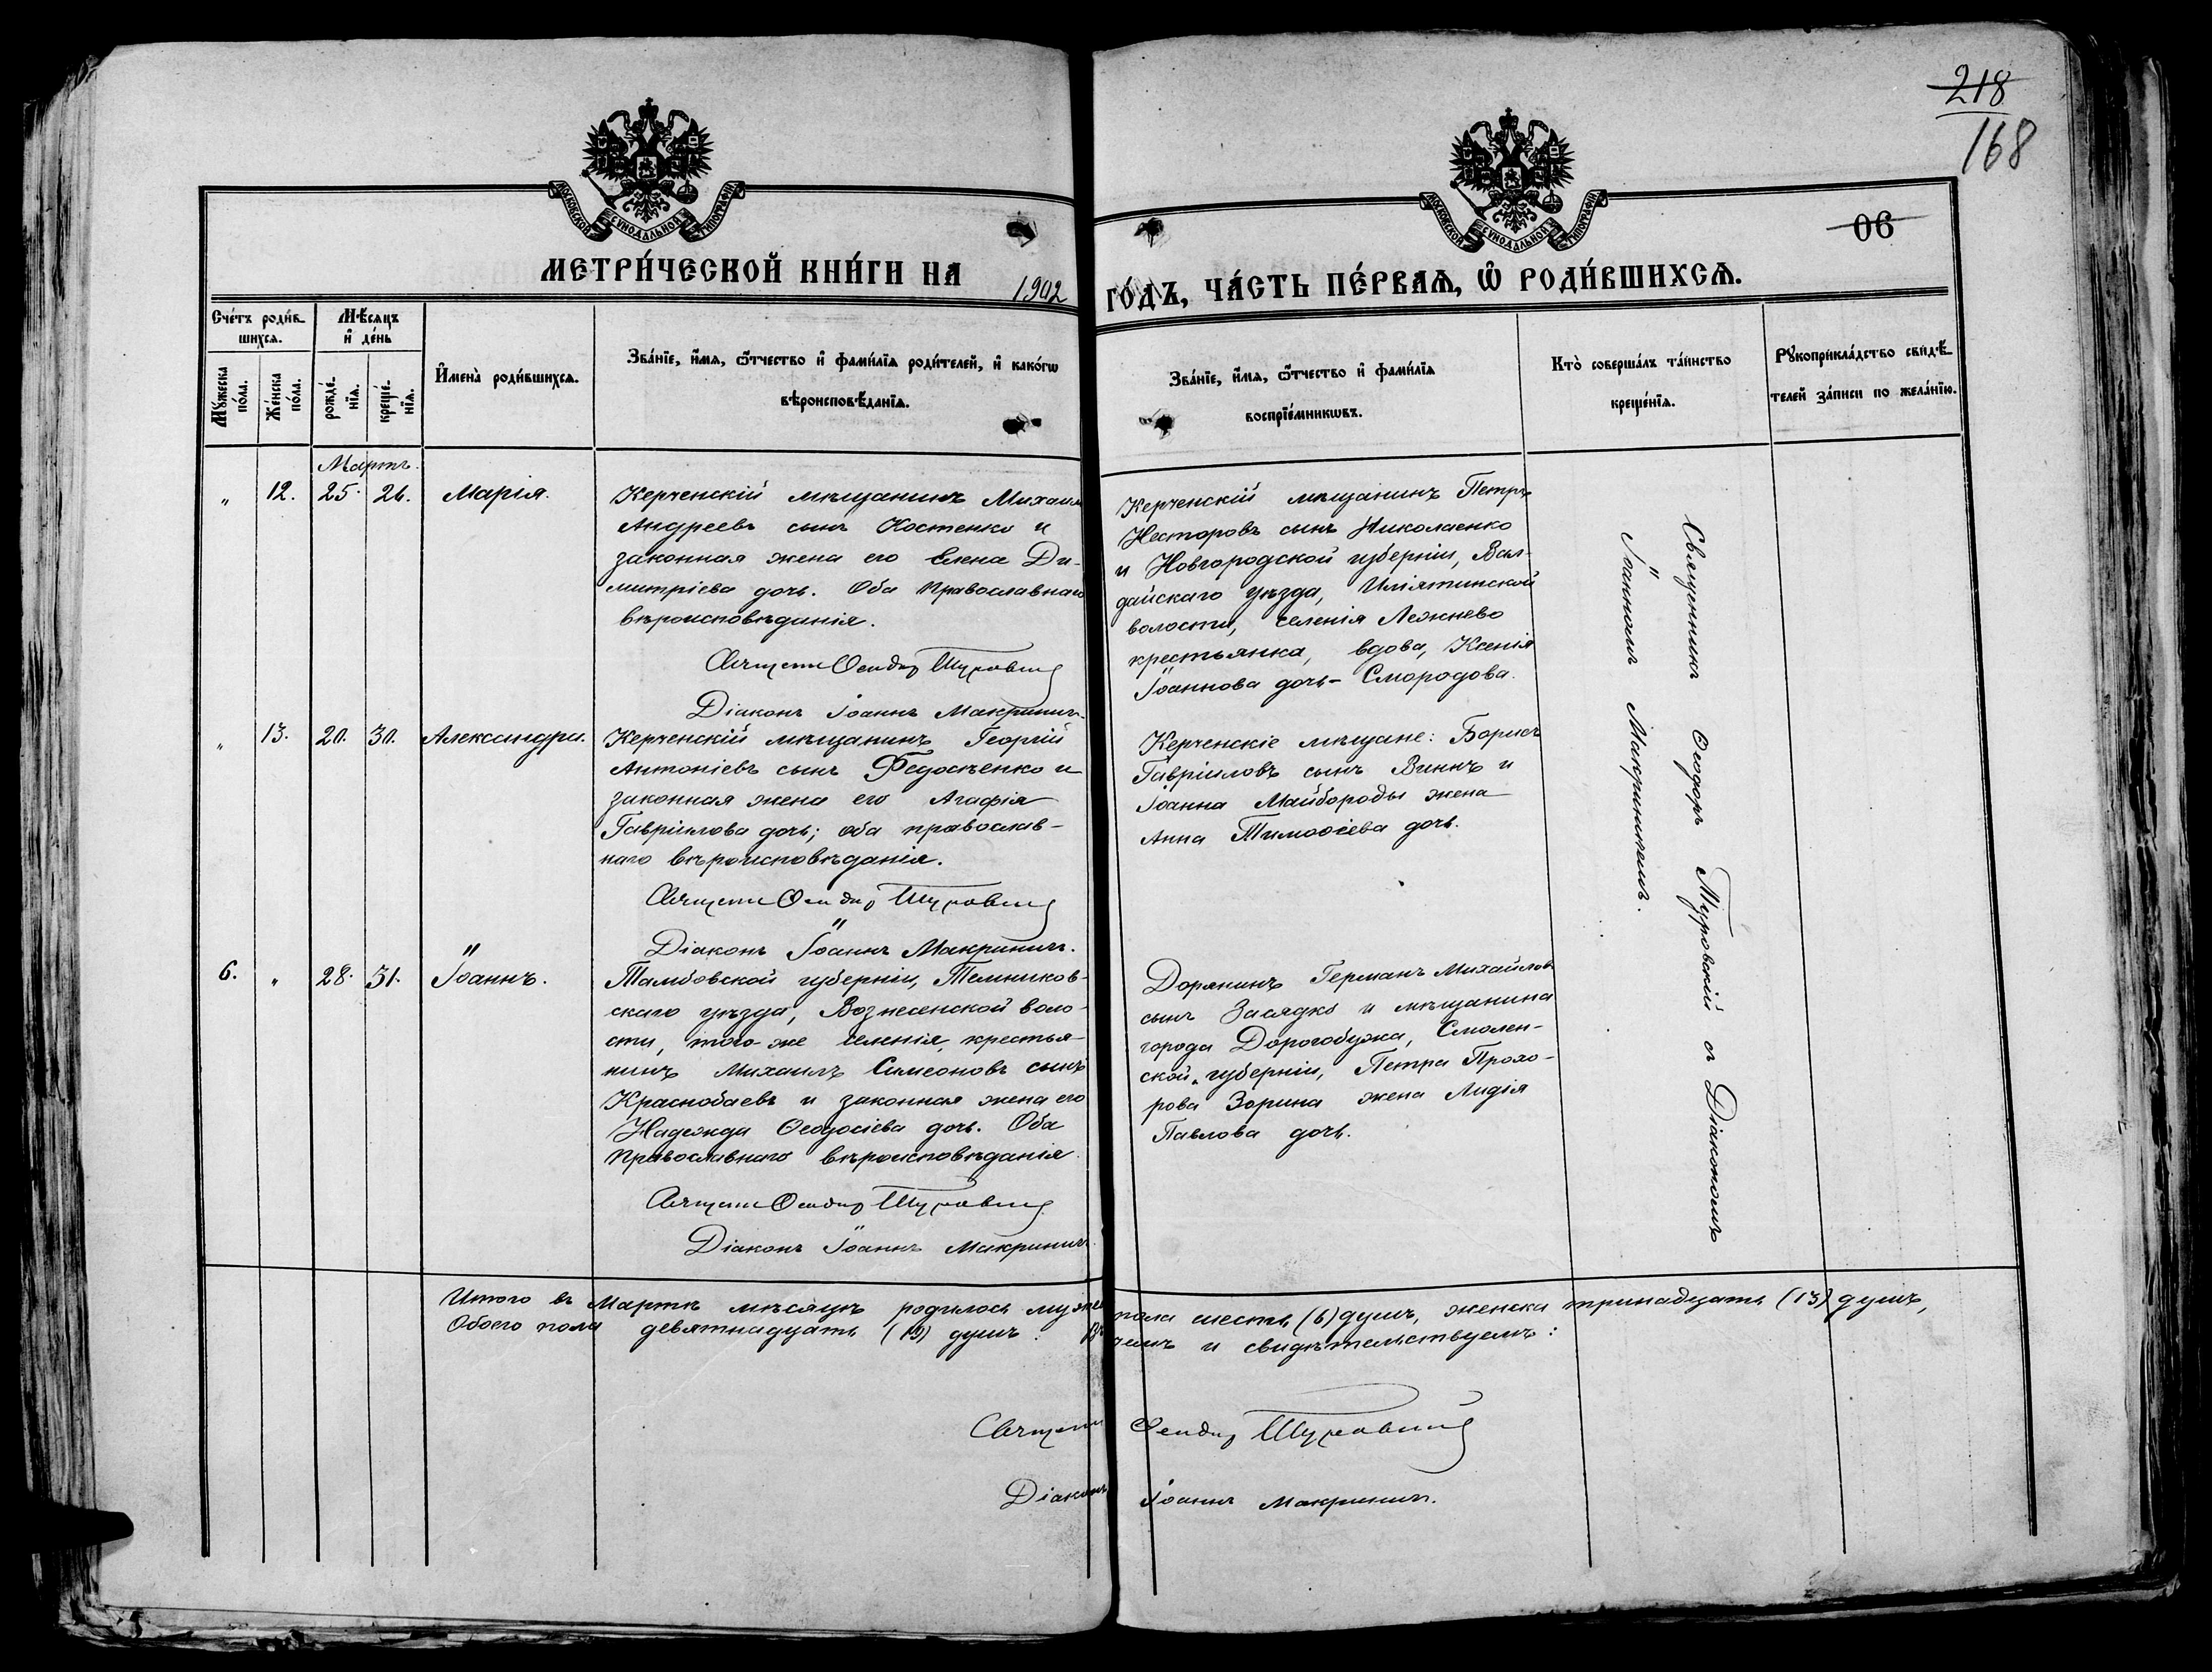 218
168
МОСКОВСКОЙ СѴНОДАЛЬНОЙ ТИПОГРАФІИ
МОСКОВСКОЙ СѴНОДАЛЬНОЙ ТИПОГРАФІИ
06
МЕТРИ́ЧЕСКОЙ КНИ́ГИ НА 1902 ГО́ДЪ, ЧА́СТЬ ПЕ́РВАѦ, Ѡ҆ РОДИ́ВШИХСѦ.
Счéтъ роди́в-
шихсѧ.
Мꙋ́жеска
по́ла.
Же́нска
по́ла.
Мѣ́сѧцъ
и҆ де́нь
рожде́-
нїѧ.
креще́-
нїѧ.
И҆мена̀ роди́вшихсѧ.
Зва́нїе, и҆́мѧ, ѻ҆́тчество и҆ фами́лїѧ роди́телей, и҆ како́гѡ
вѣроисповѣ́данїѧ.
Зва́нїе, и҆́мѧ, ѻ҆́тчество и҆ фами́лїѧ
воспрїе́мникѡвъ.
Кто̀ соверша́лъ та́инство
креще́нїѧ.
Рꙋкоприкла́дство свидѣ́-
телей за́писи по жела́нїю.
Мартъ.
" 12. 25. 26. Марія.
Керченскій мѣщанинъ Михаилъ
Андреевъ сынъ Костенко и
законная жена его Елена Ди-
митріева дочь. Оба Православнаго
вѣроисповѣданія.
Священ Ѳеодор Туровский
Діаконъ Іоаннъ Макринич.
Керченскій мѣщанинъ Петръ
Несторовъ сынъ Николаенко
и Новгородской губерніи, Вал-
дайскаго уѣзда,
волости, селенія Лежнево
крестьянка, вдова, Ксенія
Іоаннова дочь - Смородова.
Священникъ Ѳеодоръ Туровскій съ Діакономъ
Іоанномъ Макриничемъ.
" 13. 20. 30. Александра.
Керченскій мѣщанинъ Георгій
Антоніевъ сынъ Федосѣенко и
законная жена его Агафія
Гавріилова дочь; оба православ-
наго вѣроисповѣданія.
Священ Ѳеодор Туровский
Діаконъ Іоаннъ Макринич.
Керченскіе мѣщане: Борисъ
Гавріиловъ сынъ Виннъ и
Іоанна Майбороды жена
Анна Тимоѳіева дочь.
6. " 28. 31. Іоаннъ.
Тамбовской губерніи, Темников-
скаго уѣзда, Вознесенской воло-
сти, того-же селенія, крестья-
нинъ Михаилъ Симеоновъ сынъ
Краснобаевъ и законная жена его
Надежда Ѳеодосіева дочь. Оба
Православнаго вѣроисповѣданія.
Священ Ѳеодор Туровский
Діаконъ Іоаннъ Макринич.
Дорянинъ Германъ Михайловъ
сынъ Засядко и мѣщанина
города Дорогобужа, Смолен-
ской губерніи, Петра Прохо-
рова Зорина жена Лидія
Павлова дочь.
Итого въ Мартѣ мѣсяцѣ родилось мужеска пола шесть (6) душъ, женска тринадцать (13) душъ,
Обоего пола девятнадцать (19) душъ. чемъ и свидѣтельствуемъ:
Священ Ѳеодор Туровский
Діаконъ Іоаннъ Макринич.